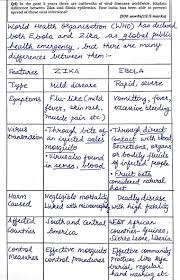 Q8) In the past 5 years there are outbreaks of viral diseases worldwide. Explain
difference between Zika and Ebola epidemics. How India has been able to prevent
spread of these viral infections?
(200 words/12.5 marks)
World Health Organisation (WHO) has declared
both Ebola and Zika as global public
health emergency, but there are many
differences between them :-
Features ZIKA EBOLA
Type Mild disease Rapid, severe
Symptoms Flu-like (mild fever, skin rash, muscle pain etc.) Vomitting, fever, extensive bleeding
Virus transmission • Through bite of an infected aedes mosquito • Virus also found in semen, blood • Through direct contact with blood, secretions, organs or bodily fluids of infected people • Fruit bats considered natural host
Harm caused Negligible mortality linked with microcephaly Deadly disease with high fatality
Affected Countries South and Central America West African countries - Guinea, Sierra Leone, Liberia
Control Measures Effective mosquito control procedures Effective community practices like safe burial, regular hand washing etc.